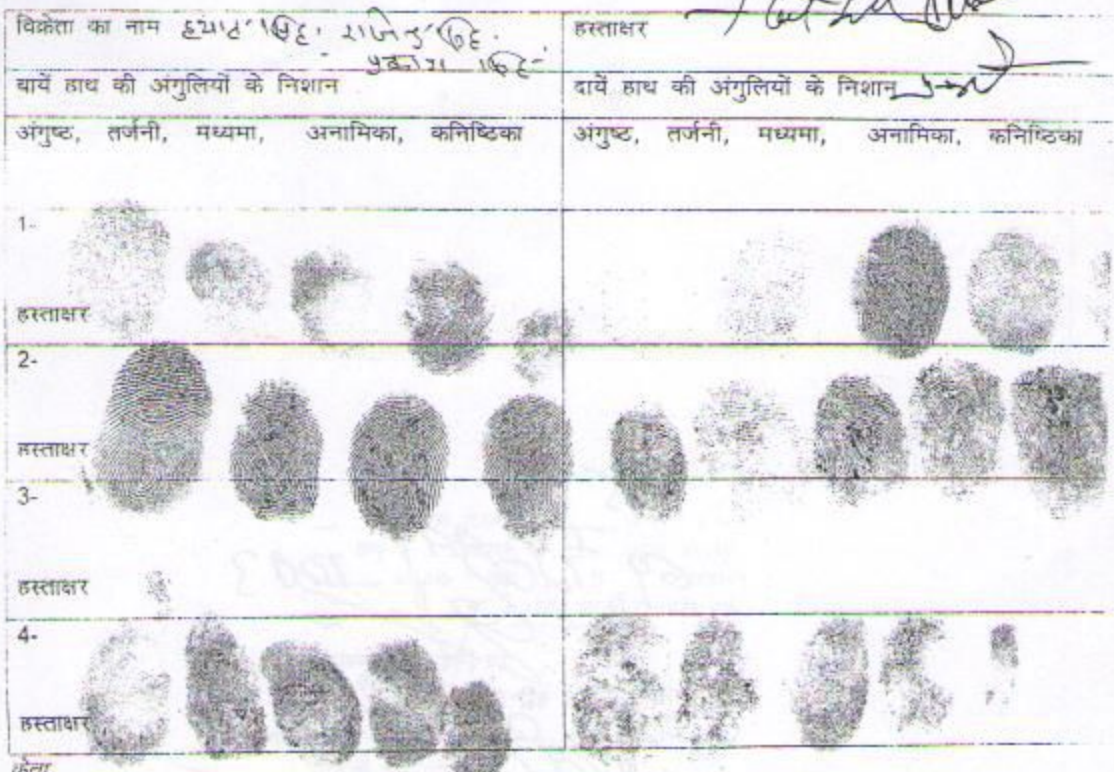 विक्रेता का नाम हयात सिंह. राजेन्द्र सिंह.
प्रकाश सिंह
हस्ताक्षर
बायें हाथ की अंगुलियों के निशान
दायें हाथ की अंगुलियों के निशान
अंगुष्ट, तर्जनी, मध्यमा, अनामिका, कनिष्ठिका
अंगुष्ट, तर्जनी, मध्यमा, अनामिका, कनिष्ठिका
1-
हस्ताक्षर
2-
हस्ताक्षर
3-
हस्ताक्षर
4-
हस्ताक्षर
क्रेता